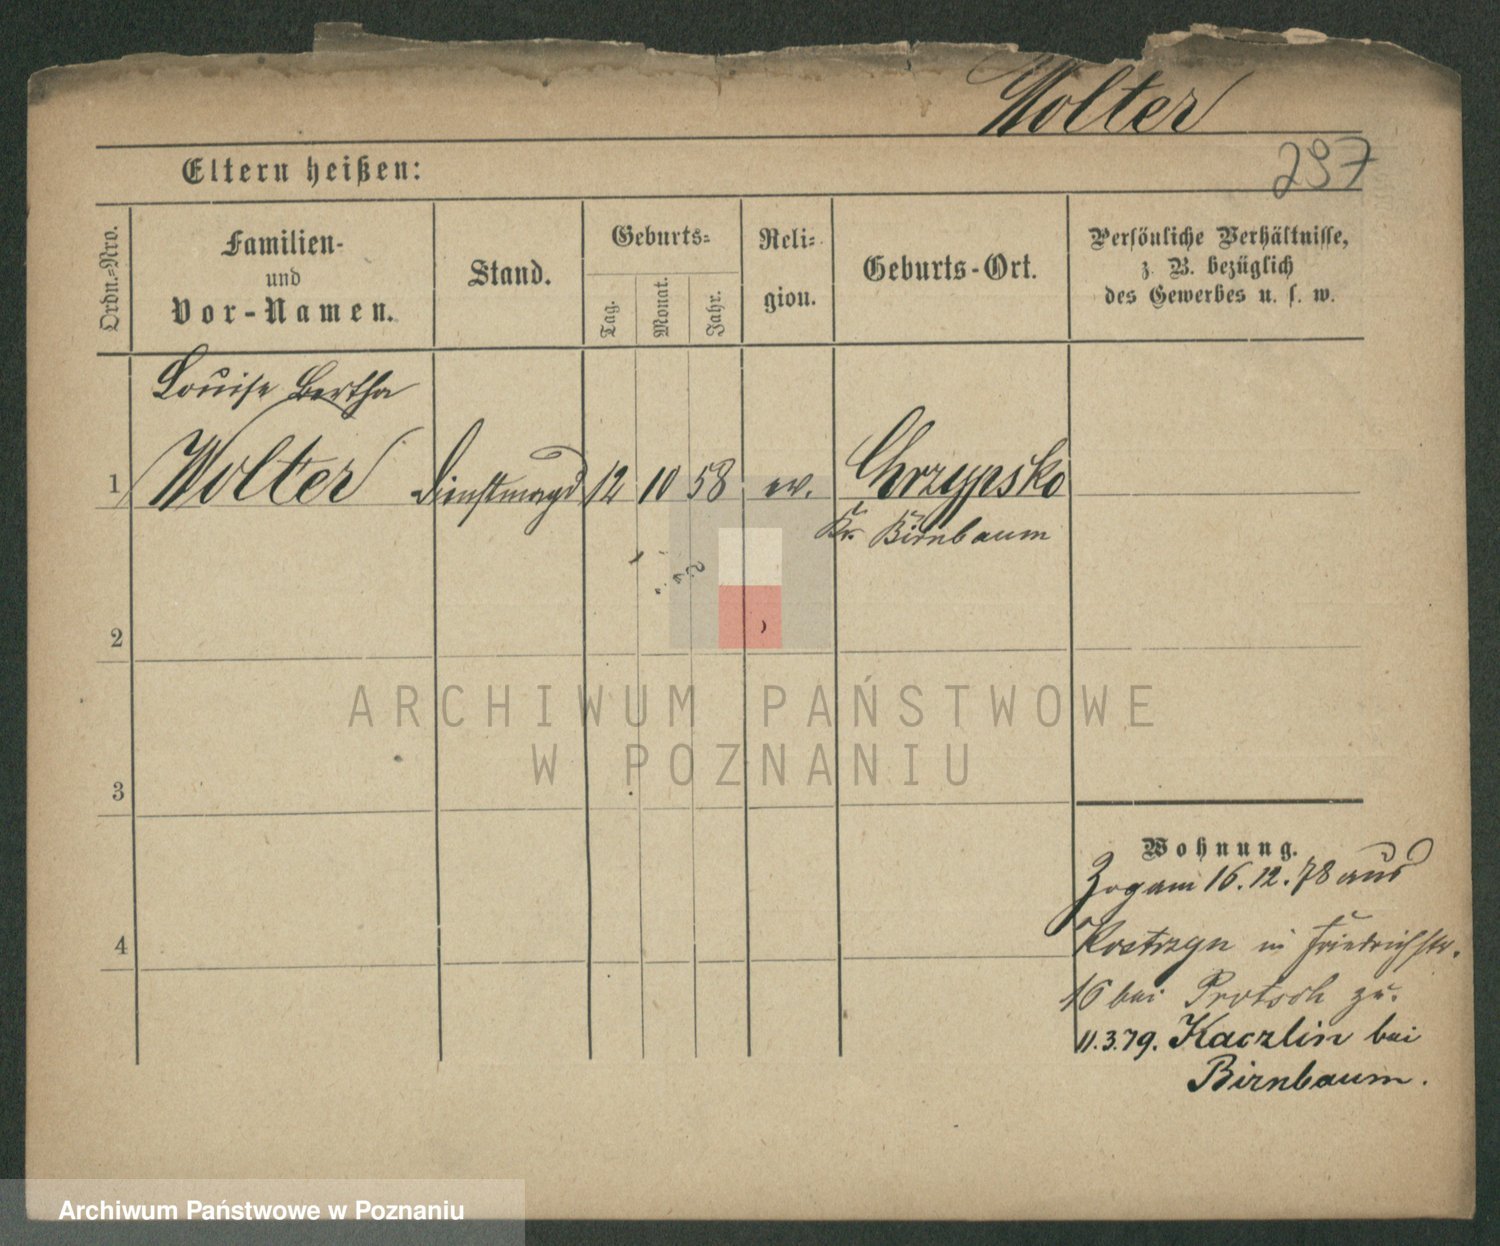 Wolter
Eltern heißen:
297
Ordn.=Nro.
Familien-
und
Vor-Namen.
Stand.
Geburts=
Tag.
Monat.
Jahr.
Reli=
gion.
Geburts-Ort.
Persönliche Verhältnisse,
z. B. bezüglich
des Gewerbes u. s. w.
Louise Bertha
1 Wolter Dienstmagd 12 10 58 ev. Chrzypsko
Kr. Birnbaum
2
ARCHIWUM PAŃSTWOWE
W POZNANIU
3
Wohnung.
Zog am 16.12.78 aus
4
Kostrzyn in Friedrichstr.
16 bei Protsch zu.
11.3.79. Kaczlin bei
Birnbaum.
Archiwum Państwowe w Poznaniu